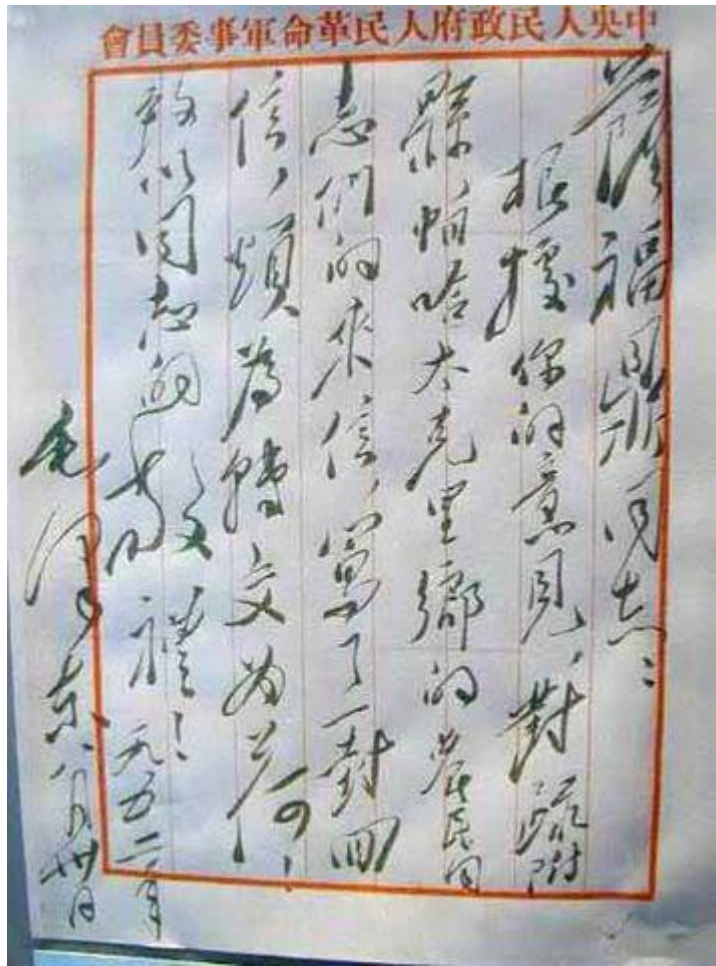 中央人民政府人民革命軍事委員會
薩福鼎同志：
根據你的意見，對疏附
縣，帕哈太克里鄉的農民同
志們的來信，寫了一封回
信，煩為轉交為荷！
致以同志的敬禮！一九五二年
毛澤東 八月卅日